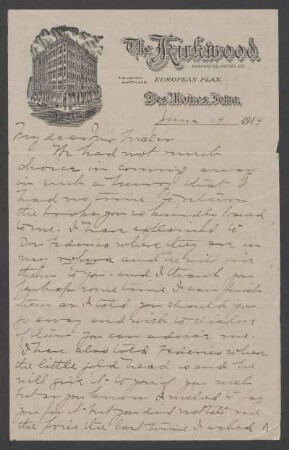 The Kirkwood
KIRKWOOD HOTEL CO.
EUROPEAN PLAN.
Des Moines, Iowa,
June 19 1914
My dear
We had not much
choice in coming away
in such a hurry that I
had no time to return
the books you so kindly loaned
to me. I have explained to
Dr. Federico where they are in
my and he will give
them to you and I thank you
perhaps some time I can finish
them as I told you should you
go away and wish to dispose
of them you can advise me.
I have also told Federico where
the little gold head is and he
will give it to you if you wish
but as you know I wished to
you for it but you did not tell me
the price the last time I asked